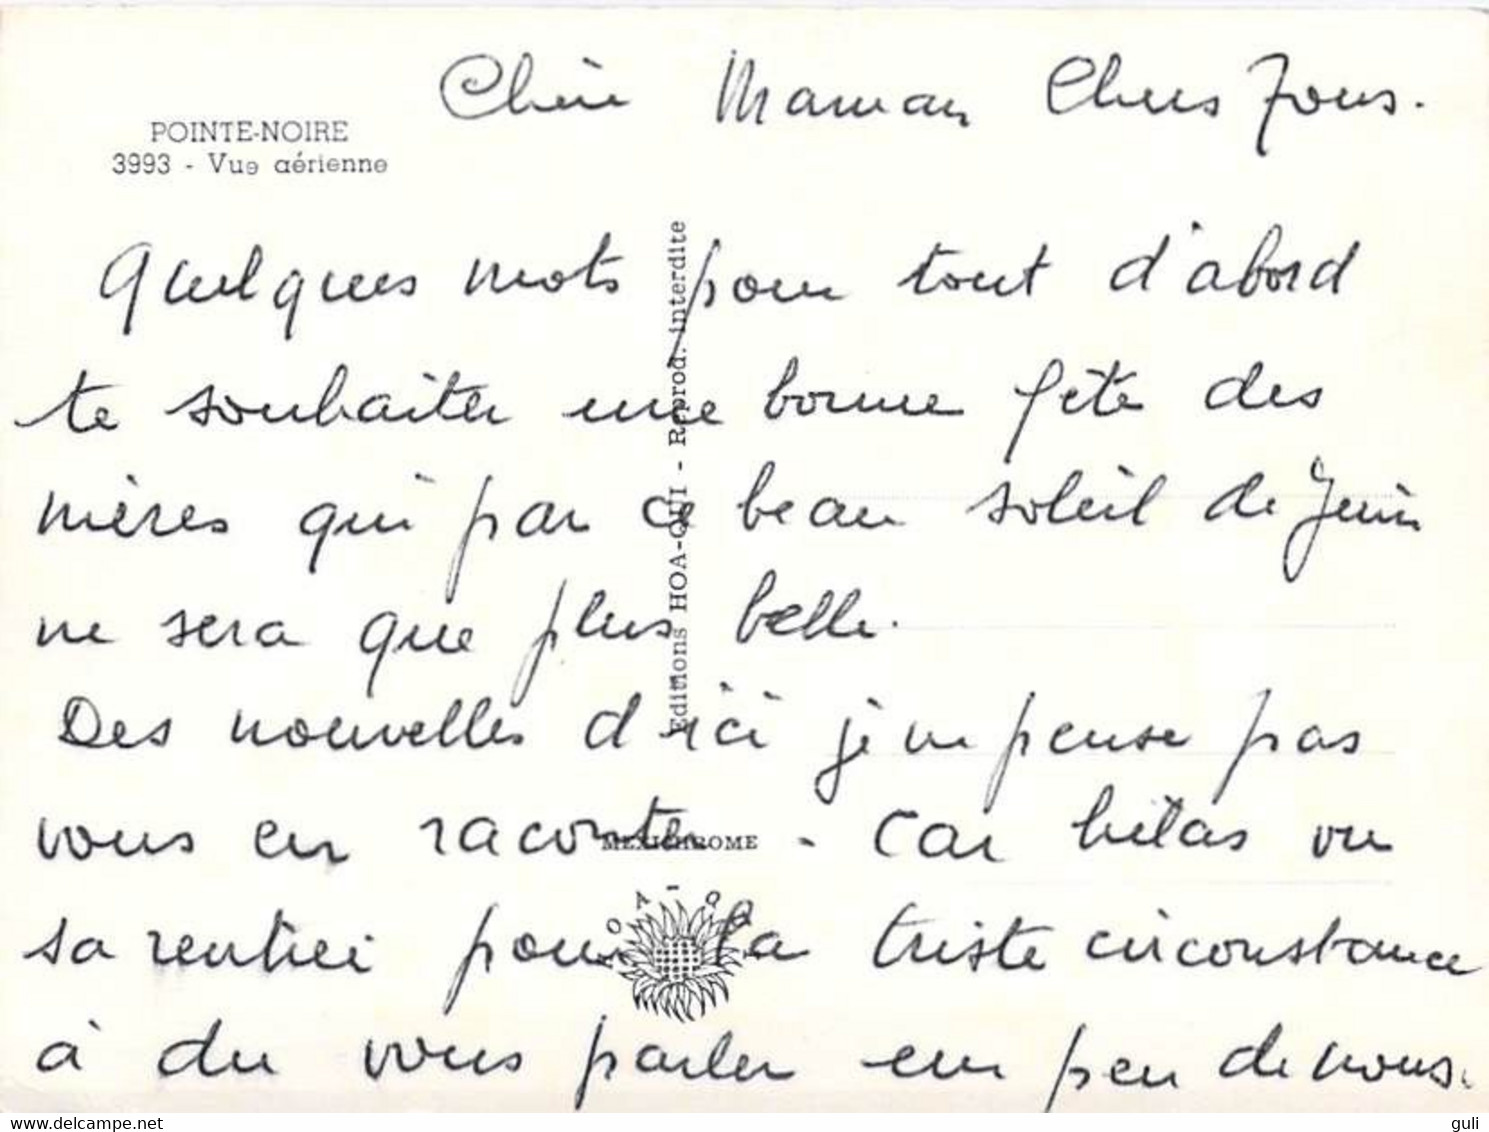 Chère Maman Chers Tous.
POINTE-NOIRE
3993 - Vue aérienne
Quelques mots pour tout d'abord
te souhaiter une bonne fête des
mères qui par ce beau soleil de Juin
ne sera que plus belle.
Des nouvelles d'ici je ne pense pas
vous en raconter - car hélas vu
sa rentrée pour la triste circonstance
à du vous parler un peu de nous.
Editions HOA-QUI - Reprod. interdite
MEXICHROME
HOA-QUI
www.delcampe.net
guli